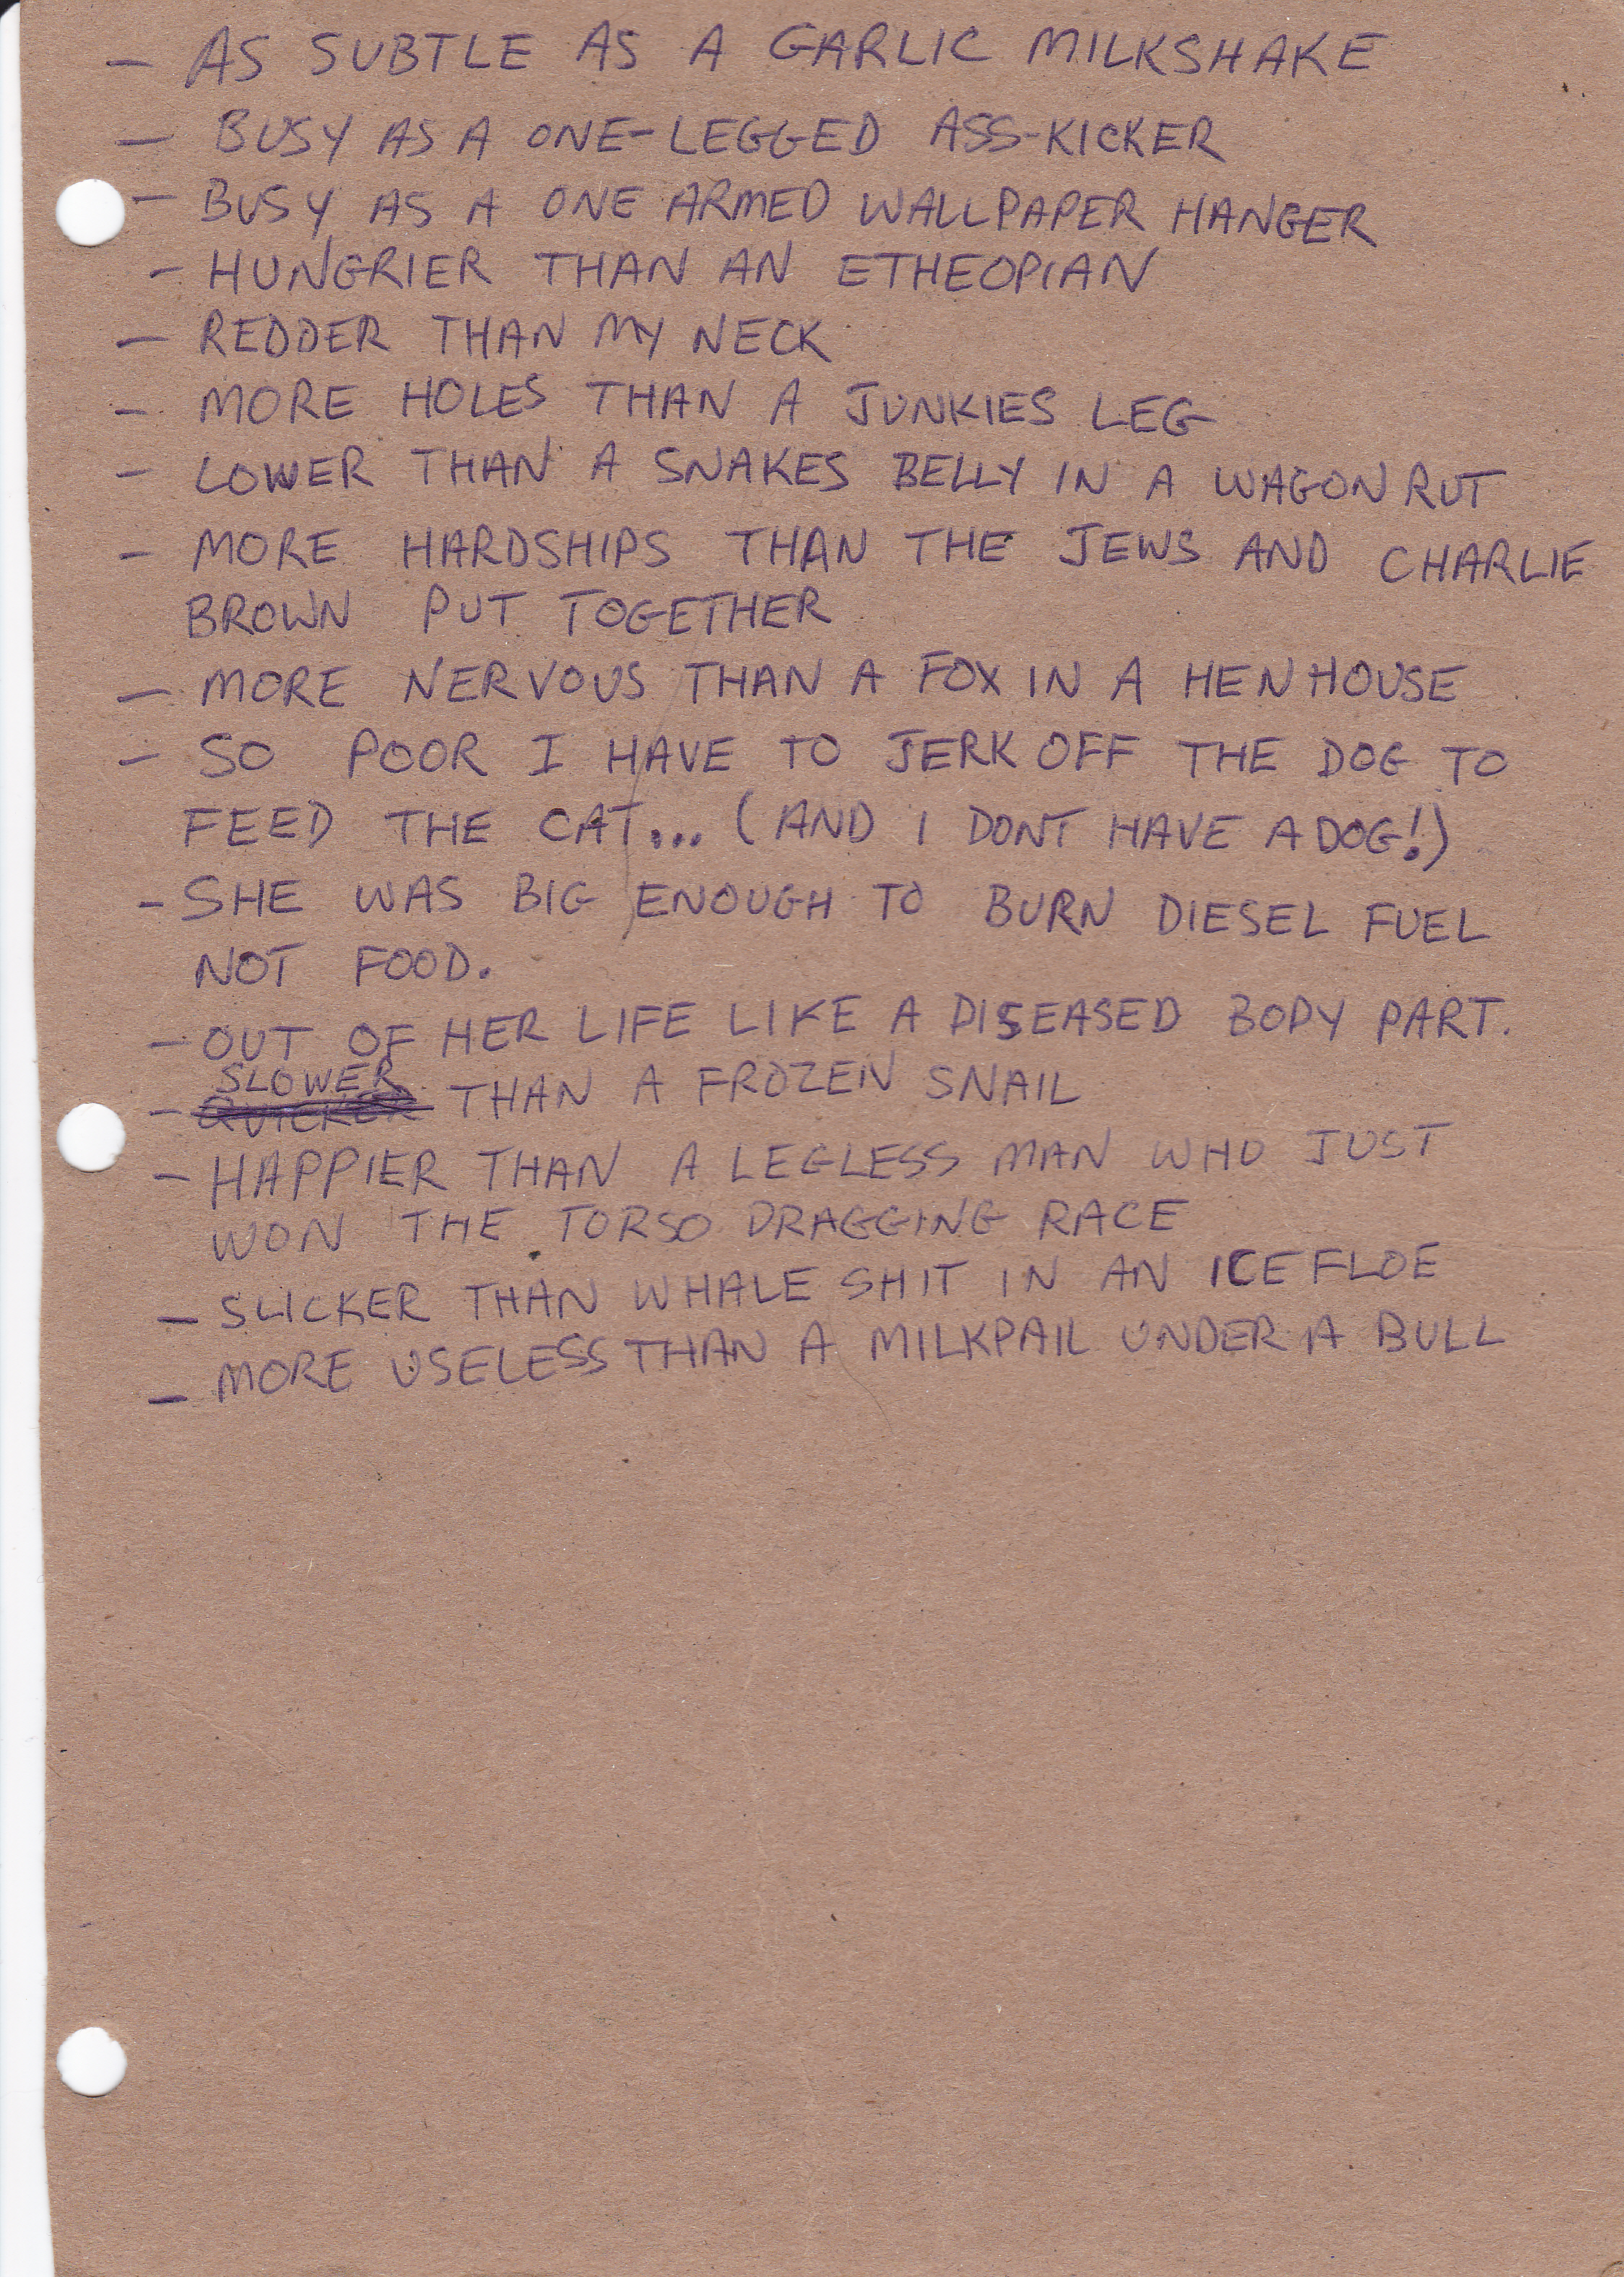 - AS SUBTLE AS A GARLIC MILKSHAKE
- BUSY AS A ONE-LEGGED ASS-KICKER
- BUSY AS A ONE ARMED WALLPAPER HANGER
- HUNGRIER THAN AN ETHEOPIAN
- REDDER THAN MY NECK
- MORE HOLES THAN A JUNKIES LEG
- LOWER THAN A SNAKES BELLY IN A WAGON RUT
- MORE HARDSHIPS THAN THE JEWS AND CHARLIE
BROWN PUT TOGETHER
- MORE NERVOUS THAN A FOX IN A HENHOUSE
- SO POOR I HAVE TO JERK OFF THE DOG TO
FEED THE CAT... (AND I DONT HAVE A DOG!)
- SHE WAS BIG ENOUGH TO BURN DIESEL FUEL
NOT FOOD.
- OUT OF HER LIFE LIKE A DISEASED BODY PART.
SLOWER
- QUICKER THAN A FROZEN SNAIL
- HAPPIER THAN A LEGLESS MAN WHO JUST
WON THE TORSO DRAGGING RACE
- SLICKER THAN WHALE SHIT IN AN ICE FLOE
- MORE USELESS THAN A MILKPAIL UNDER A BULL